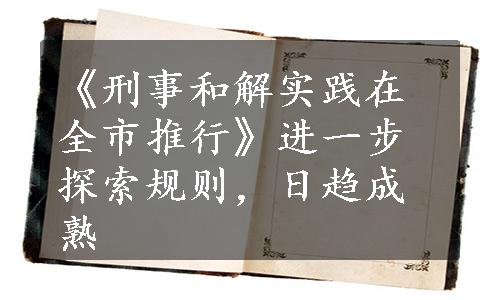 《刑事和解实践在
全市推行》进一步
探索规则，日趋成
熟